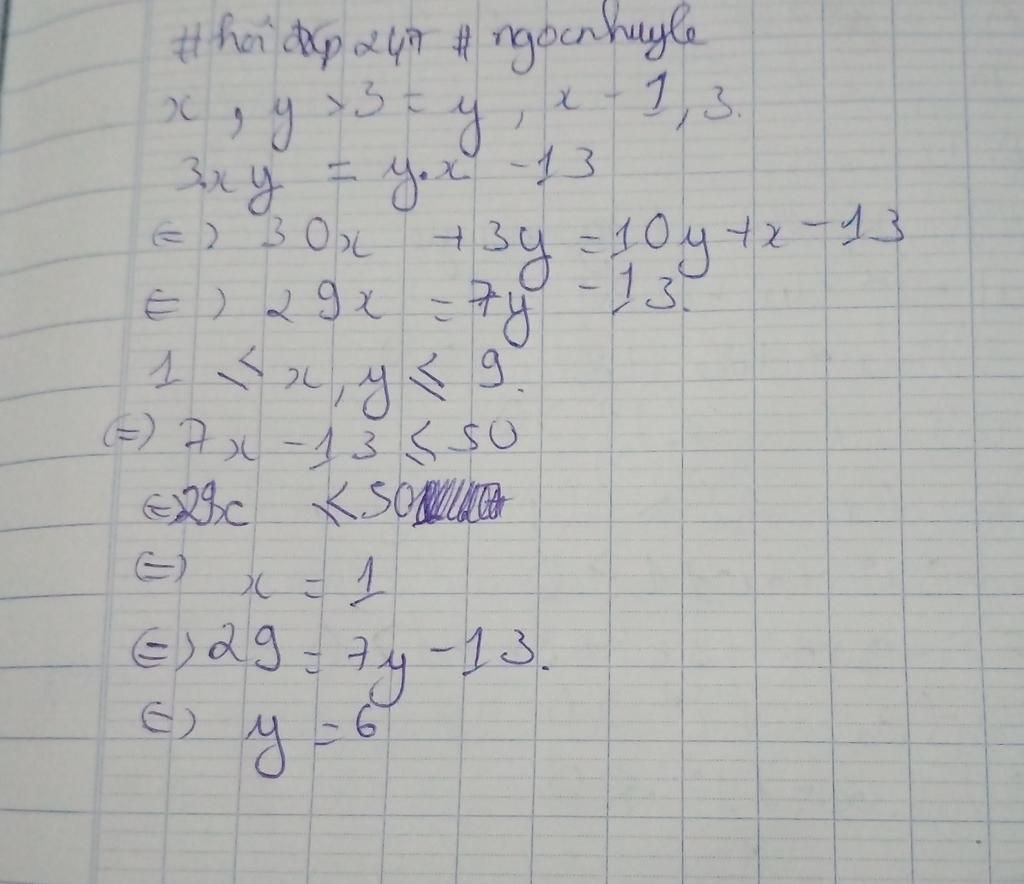 #hỏi đáp 247 # ngocnhuyle
x , y × 3 = y , x - 1,3.
3xy = y.x - 13
⇔ 30x + 3y = 10y + x - 13
⇔ 29x = 7y - 13.
1 ≤ x, y ≤ 9.
⇔ 7x - 13 ≤ 50
⇔ 29x ≤ 50
⇔ x = 1
⇔ 29 = 7y - 13.
⇔ y = 6